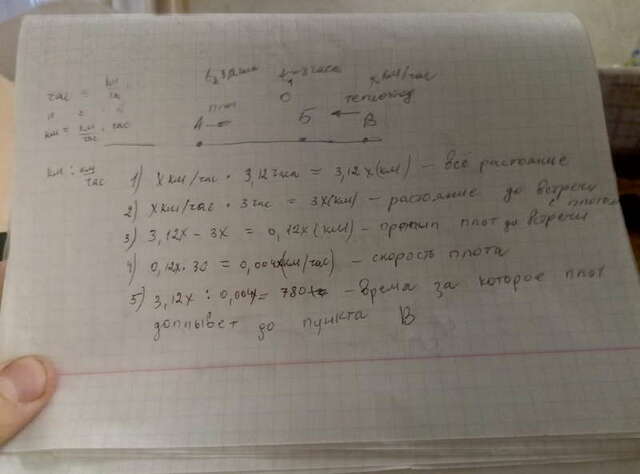 час = км
км = км/час · час
км : км/час
t₁ = 3 часа
x км/час
плот
теплоход
А Б В
1) x км/час · 3,12 часа = 3,12x (км) – всё растояние
2) x км/час · 3 час = 3x (км) – растояние до встречи с плотом
3) 3,12x – 3x = 0,12x (км) – плот до встречи
4) 0,12x : 30 = 0,004x (км/час) – скорость плота
5) 3,12x : 0,004x = 780 – время за которое плот
доплывёт до пункта В